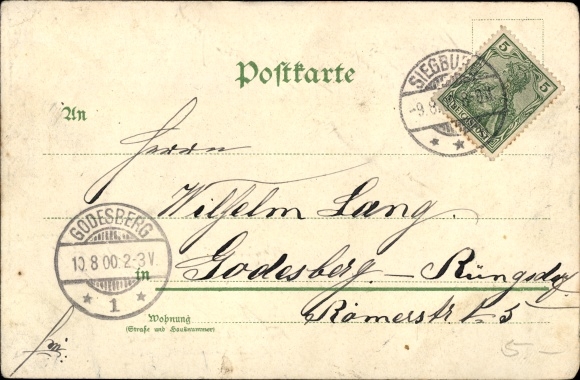 Postkarte
5
5
SIEGBURG
-9.8.
8-9N
REICHSPOST
An
Herrn
Wilhelm Lang.
GODESBERG
10.8.00.2-3V.
* 1 *
in Godesberg. – Rüngsdorf
Wohnung
(Straße und Hausnummer)
Römerstr 5
5.–